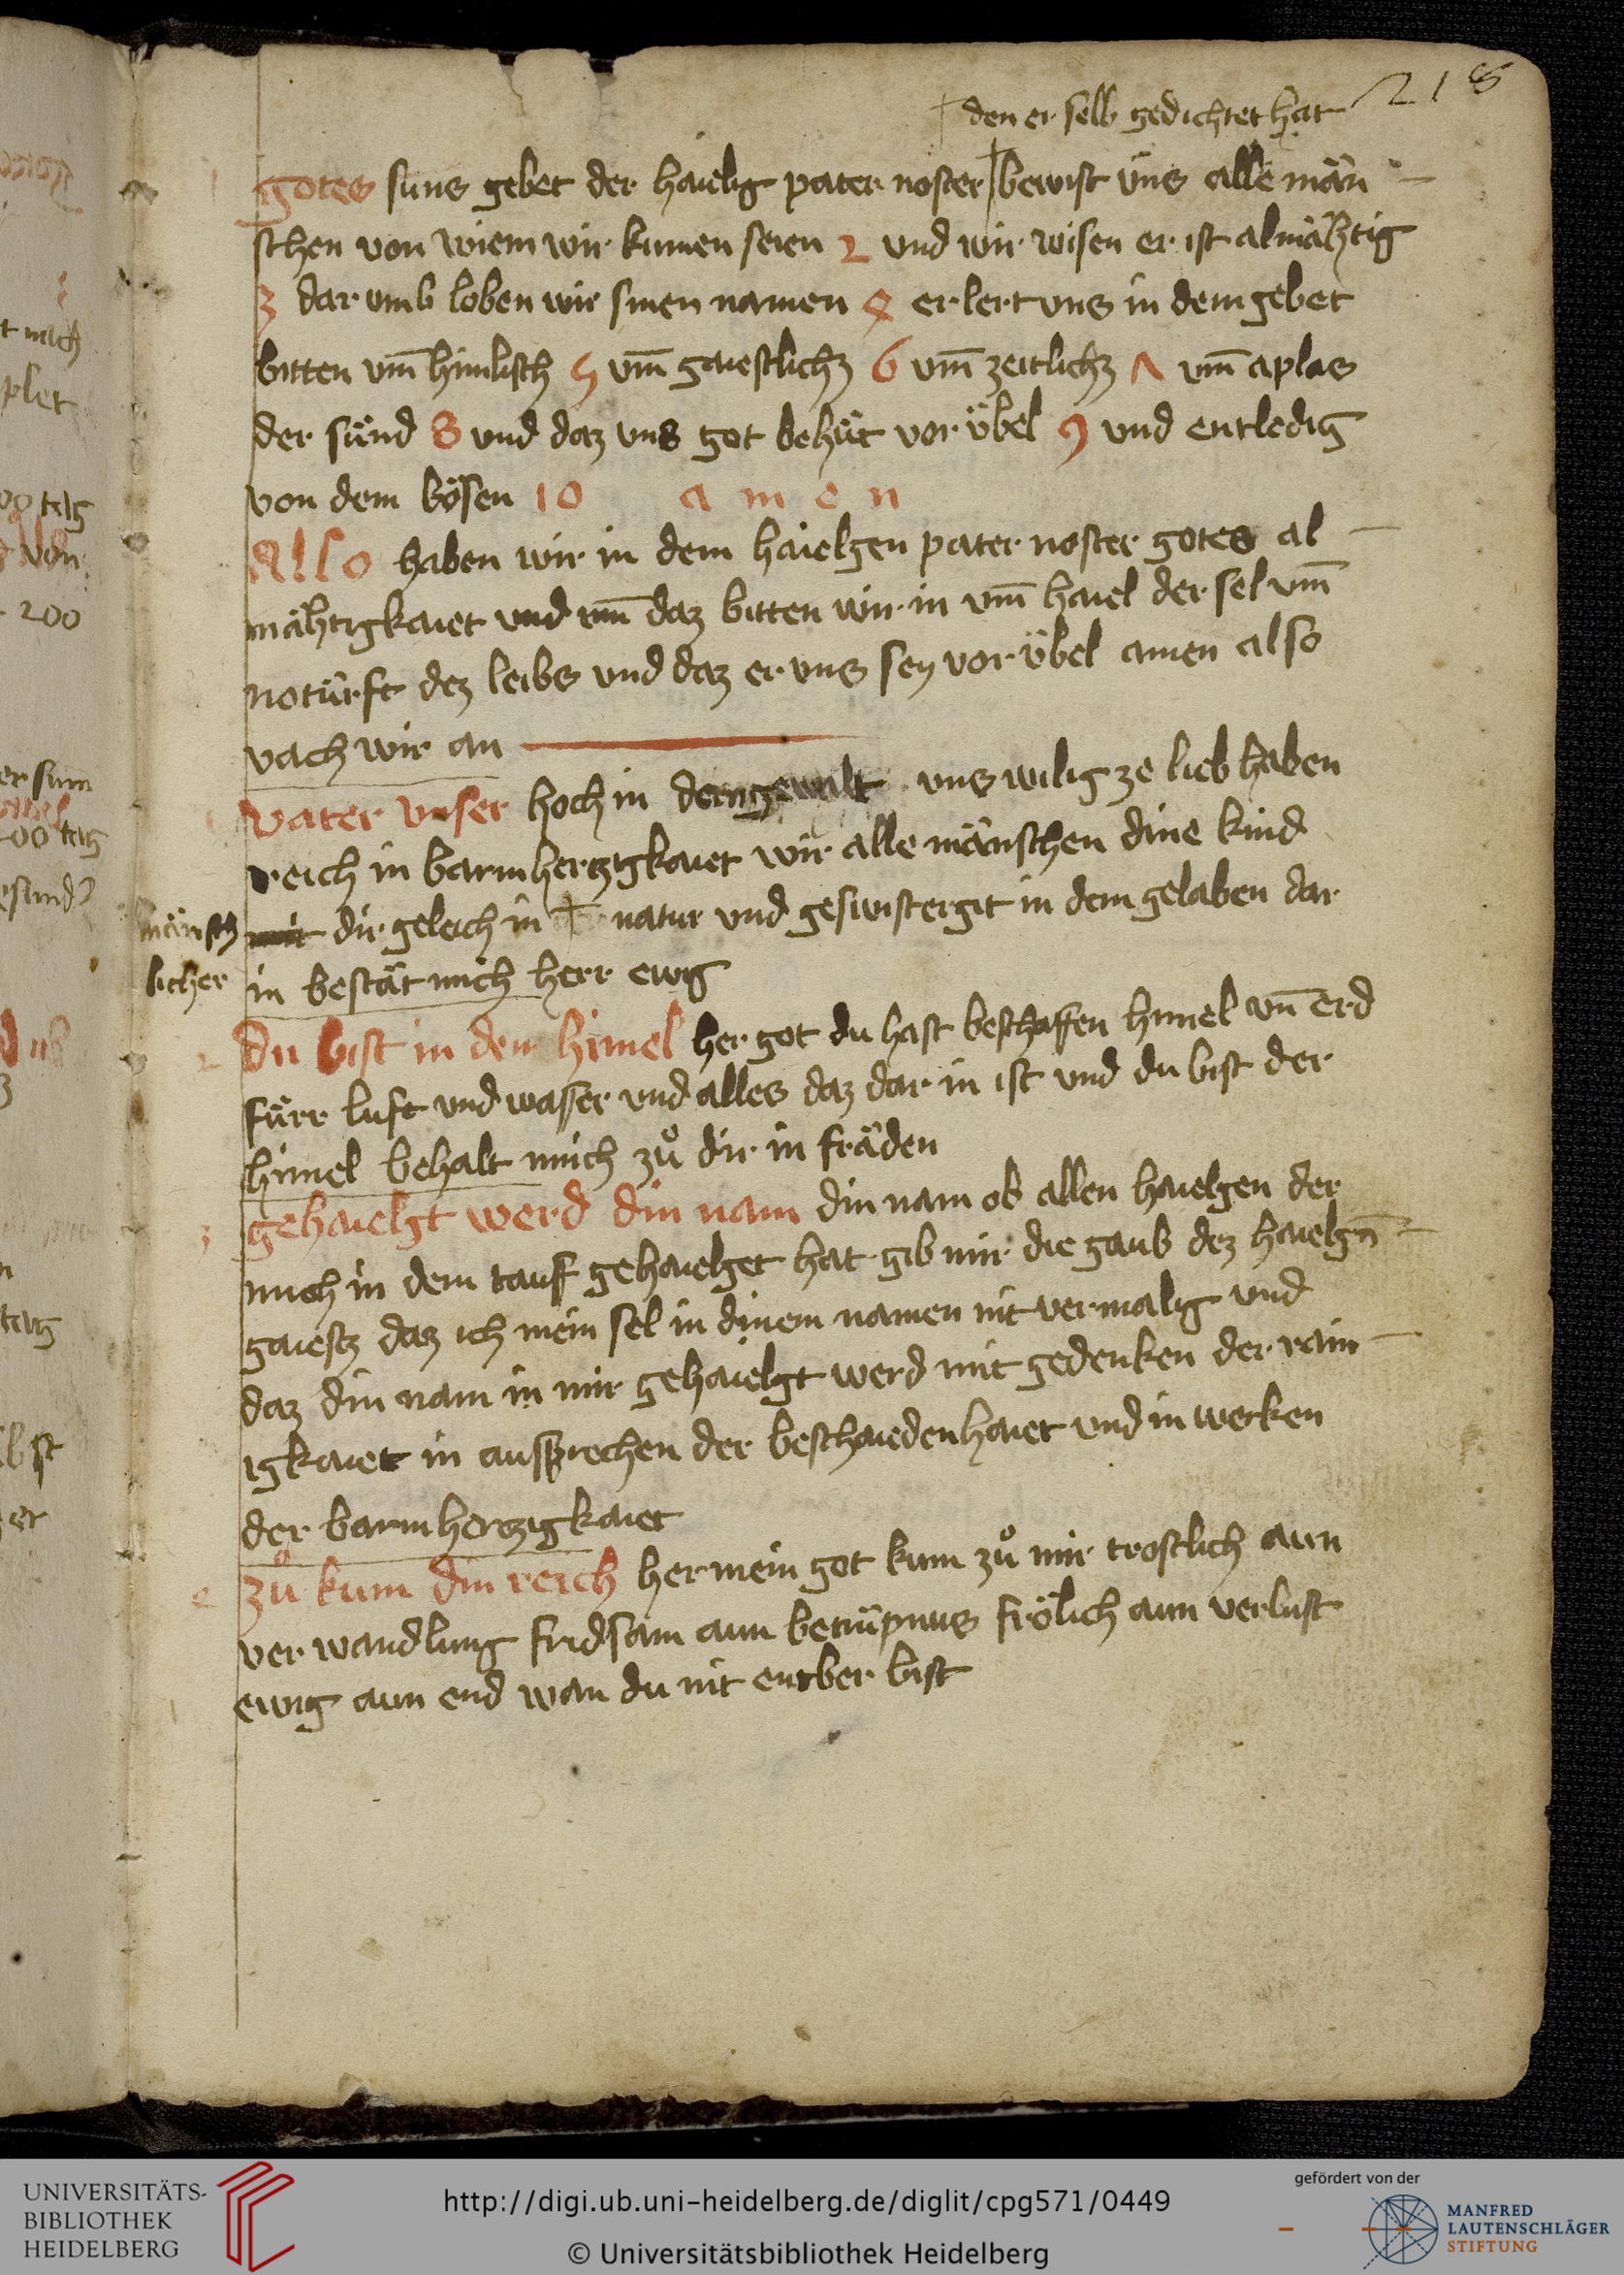 218
† den er selb gedichtet hat
1 gotes suns gebet der haielig pater noster † bewist üns alle män
schen von wiem wir kumen seien 2 und wir wisen er ist almähtig
3 dar umb loben wir sinen namen 4 er lert vns in dem gebet
bitten vm̄ himlisch 5 vm̄ gaiestlichz 6 vm̄ zeitlichz 7 vm̄ aplas
der sünd 8 und daz vns got behüt vor übel 9 und entledig
von dem bösen 10 a m e n
Also haben wir in dem haielgen pater noster gotes al
mähtigkaiet und daz bitten wir in vm̄ haiel der sel vm̄
notürft dez leibs und daz er vns sey vor übel amen also
vach wir an
Vater vnser hoch in dem gewalt vns wilig ze lieb haben
reich in barmhertzigkaiet wir alle mänschen dine kind
mit dir geleich in † natur und geswistergit in dem gelaben dar
mänsch
licher
in bestät mich herr ewig
2 du bist in dem himel her got du hast beschaffen himel vn̄ erd
fürr luft und wasser und alles daz dar in ist und du bist der
himel behalt mich zů dir in fräden
3 gehaielgt werd din nam din nam ob allen haielgen der
mich in dem tauf gehaielget hat gib mir die gaub dez haielgn̄
gaiestz daz ich mein sel in dinem namen nit vermalig und
daz din nam in mir gehaielgt werd mit gedenken der rain
igkaiet in aussprechen der beschaiedenhaiet und in werken
der barmhertzigkaiet
4 zů kum din reich her mein got kum zů mir trostlich aun
verwandlung fridsam aun betrüpnus frölich aun verlust
ewig aun end wan du nit entber bist
t mich
plet
00 tag
von
200
er sun
00 tag
esund
tag
bst
er
UNIVERSITÄTS-
BIBLIOTHEK
HEIDELBERG
http://digi.ub.uni-heidelberg.de/diglit/cpg571/0449
© Universitätsbibliothek Heidelberg
gefördert von der
MANFRED
LAUTENSCHLÄGER
STIFTUNG